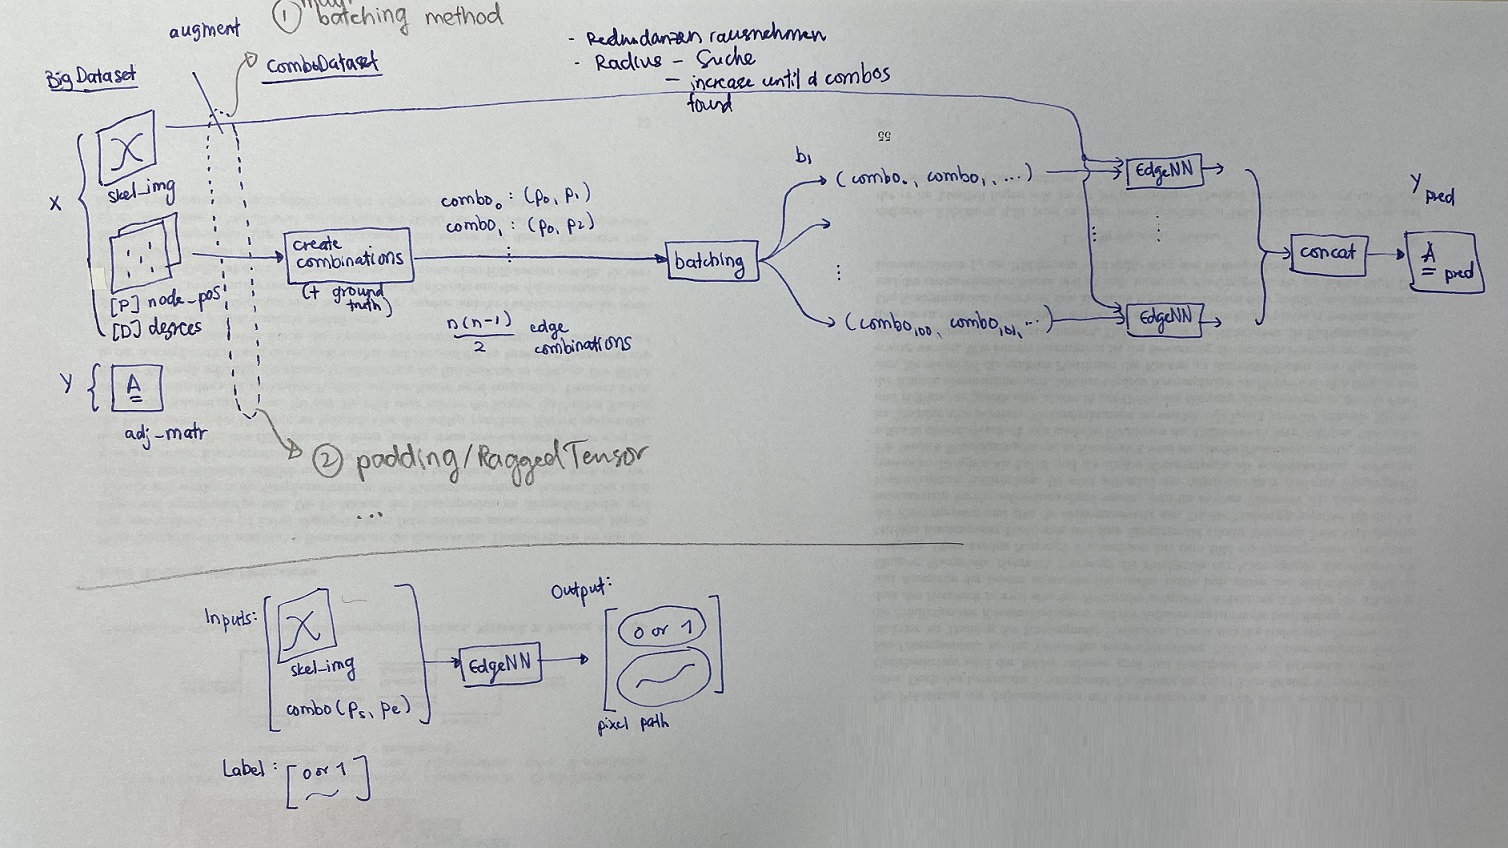 ① batching method
augment
ComboDataset
Big Dataset
- Redundanzen rausnehmen
- Radius - Suche
- increase until d combos
found
X
skel_img
[P] node_pos
[D] degrees
Y
A
adj_matr
create
combinations
(+ ground
truth)
combo₀ : (p₀, p₁)
combo₁ : (p₀, p2)
⋮
n(n-1)
2
edge
combinations
batching
b₁
(combo₀, combo₁, ...)
⋮
(combo₁₀₀, combo₁₀₁, ...)
55
EdgeNN
⋮
EdgeNN
concat
Y pred
A pred
② padding/RaggedTensor
...
Inputs:
skel_img
combo(ps, pe)
EdgeNN
Output:
0 or 1
pixel path
Label :
[0 or 1]